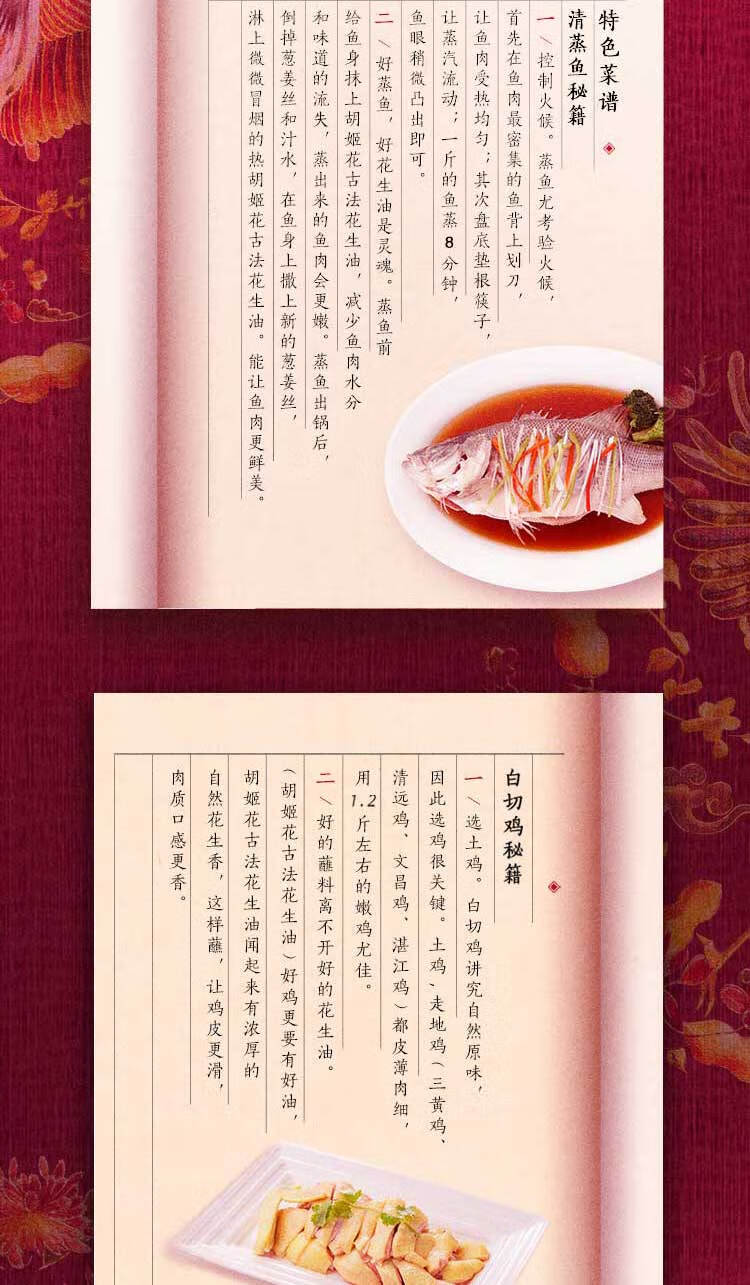 特色菜谱
清蒸鱼秘籍
一、控制火候。蒸鱼尤考验火候，
首先在鱼肉最密集的鱼背上划刀，
让鱼肉受热均匀；其次盘底垫根筷子，
让蒸汽流动；一斤的鱼蒸8分钟，
鱼眼稍微凸出即可。
二、好蒸鱼，好花生油是灵魂。蒸鱼前
给鱼身抹上胡姬花古法花生油，减少鱼肉水分
和味道的流失，蒸出来的鱼肉会更嫩。蒸鱼出锅后，
倒掉葱姜丝和汁水，在鱼身上撒上新的葱姜丝，
淋上微微冒烟的热胡姬花古法花生油。能让鱼肉更鲜美。
白切鸡秘籍
一、选土鸡。白切鸡讲究自然原味，
因此选鸡很关键。土鸡、走地鸡（三黄鸡、
清远鸡、文昌鸡、湛江鸡）都皮薄肉细，
用1.2斤左右的嫩鸡尤佳。
二、好的蘸料离不开好的花生油。
（胡姬花古法花生油）好鸡更要有好油，
胡姬花古法花生油闻起来有浓厚的
自然花生香，这样蘸，让鸡皮更滑，
肉质口感更香。